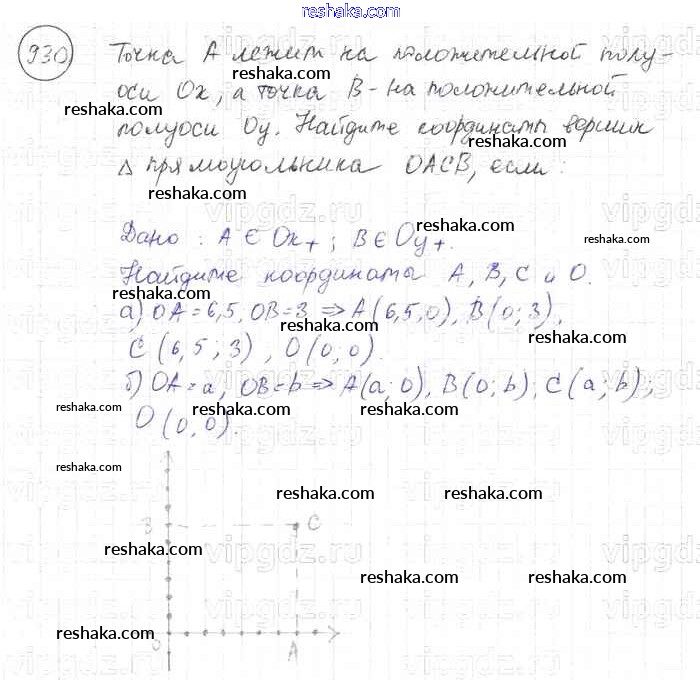 reshaka.com
930 Точка А лежит на положительной полу-
reshaka.com
оси Ox, а точка B - на положительной
reshaka.com reshaka.com
полуоси Oy. Найдите координаты вершин
reshaka.com
Δ прямоугольника OACB, если:
reshaka.com
reshaka.com
Дано: A ∈ Ox+; B ∈ Oy+.
reshaka.com
Найдите координаты A, B, C и O.
а) OA = 6,5, OB = 3 => A(6,5,0), B(0; 3),
reshaka.com
C(6,5; 3), O(0; 0).
reshaka.com
б) OA = a, OB = b => A(a; 0), B(0; b), C(a; b);
reshaka.com reshaka.com reshaka.com
O(0,0).
reshaka.com
reshaka.com reshaka.com
3 C
reshaka.com
reshaka.com reshaka.com
reshaka.com
0 A